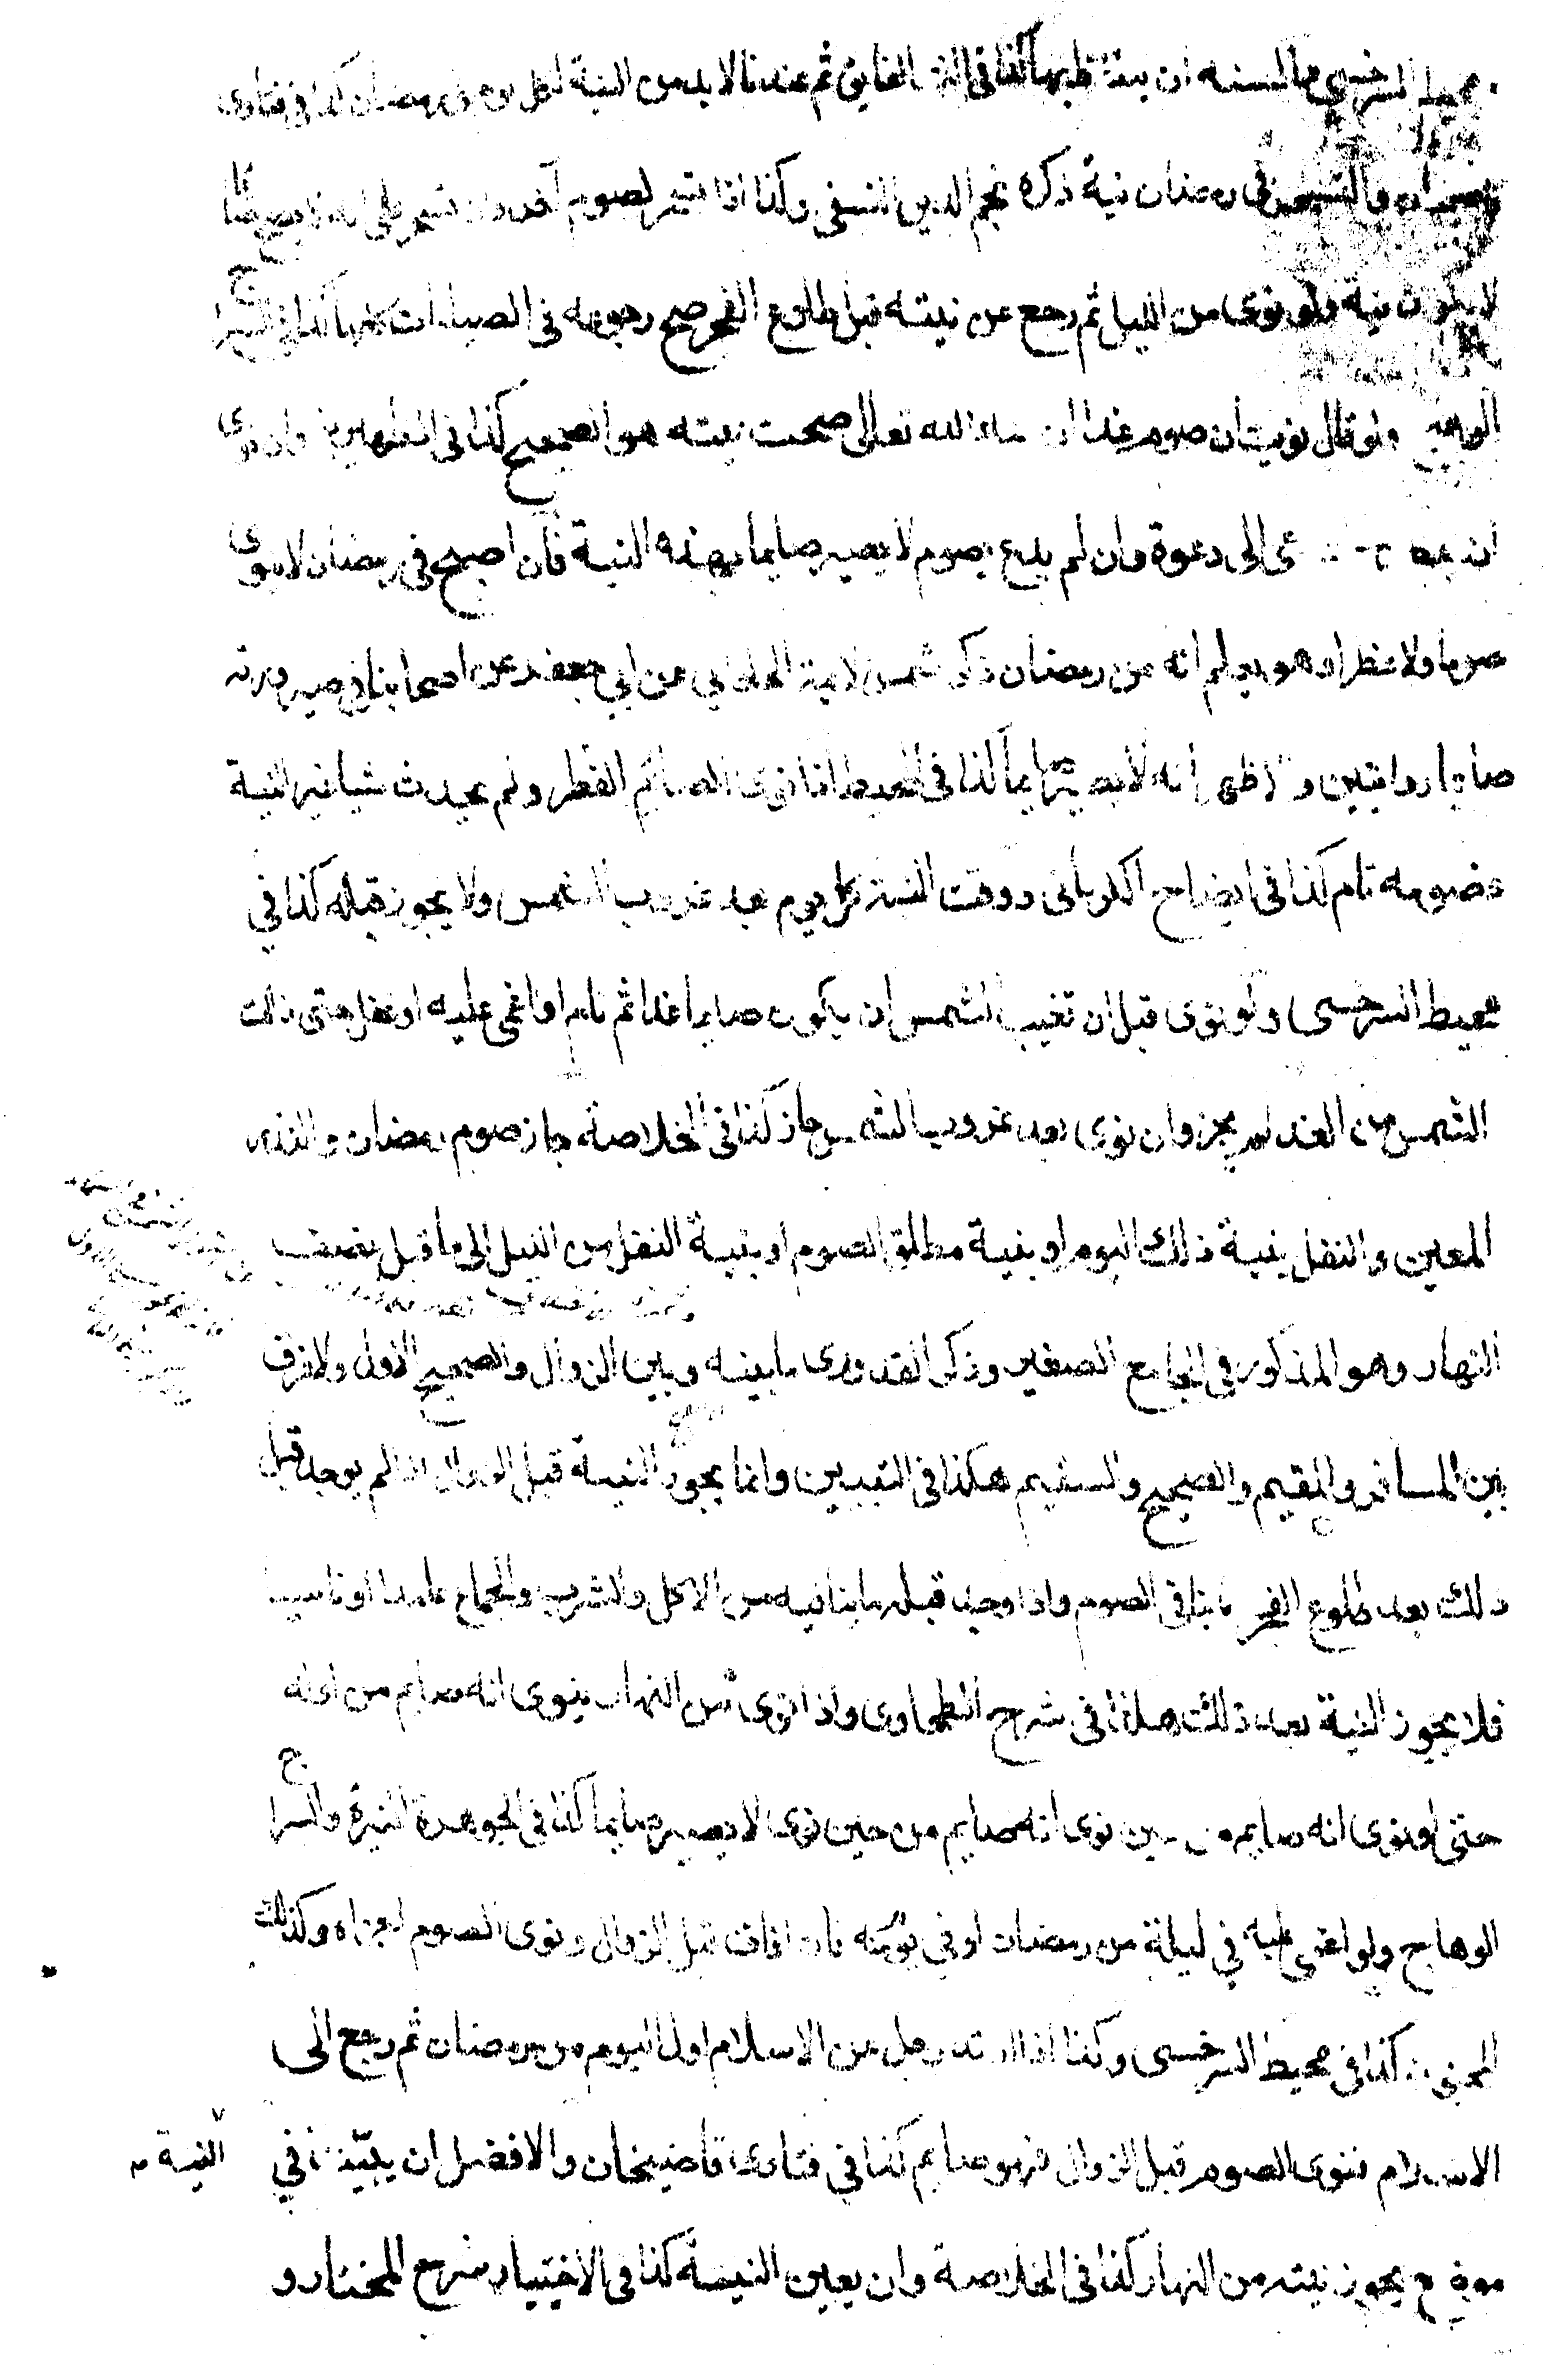 محيط السرخسي والسنه ان يتلفظ بها كذا في النهر الفايق ثم عندنا لا بد من النية لكل يوم في رمضان كذا في فتاوى
والتسحر في رمضان نية ذكره نجم الدين النسفي وكذا اذا تسحر لصوم آخر وان تسحر على انه لا يصبح صائما
لا يكون نية ولو نوى من الليل ثم رجع عن نيته قبل طلوع الفجر صح رجوعه في الصيامات كلها كذا في السراج
الوهاج ولو قال نويت ان صوم غدا ان شاء الله تعالى صحت نيته هو الصحيح كذا في الظهيرية وان نوى
ان يفطر غدا ان دعى الى دعوة وان لم يدع يصوم لا يصير صايما بهذه النية فان اصبح في رمضان لا ينوى
صوما ولا فطرا وهو يعلم انه من رمضان ذكر شمس الايمة الحلواني عن ابي جعفر عن اصحابنا في صيرورته
صايما روايتين والاظهر انه لا يصير صايما كذا في المحيط اذا نوى الصائم الفطر ولم يحدث شيا غير النية
فصومه تام كذا في ايضاح الكرماني ووقت النية كل يوم بعد غروب الشمس ولا يجوز قبله كذا في
محيط السرخسى ولو نوى قبل ان تغيب الشمس ان يكون صايما غدا ثم نام او اغمى عليه او غفل حتى زالت
الشمس من الغد لم يجز وان نوى بعد غروب الشمس جاز كذا في الخلاصة جاز صوم رمضان والنذر
المعين والنفل بنية ذلك اليوم او بنية مطلق الصوم او بنية النفل من الليل الى ما قبل نصف
النهار وهو المذكور في الجامع الصغير وذكر القدورى ما بينه وبين الزوال والصحيح الاول ولا فرق
بين المسافر والمقيم والصحيح والسقيم هكذا في التبيين وانما يجوز النية قبل الزوال اذا لم يوجد قبل
ذلك بعد طلوع الفجر ما ينافى الصوم واذا وجد قبله ما ينافيه من الاكل والشرب والجماع عامدا او ناسيا
فلا يجوز النية بعد ذلك هكذا في شرح الطحاوى واذا نوى من النهار ينوى انه صايم من اوله
حتى لو نوى انه صايم من حين نوى انه صايم من حين نوى لا يصير صايما كذا في الجوهرة النيرة والسراج
الوهاج ولو اغمى عليه في ليلة من رمضان او في يومه فان افاق قبل الزوال ونوى الصوم اجزاه وكذلك
المجنون كذا في محيط السرخسى وكذا اذا ارتد رجل عن الاسلام اول اليوم من رمضان ثم رجع الى
الاسلام فنوى الصوم قبل الزوال فهو صايم كذا في فتاوى قاضيخان والافضل ان يبيت في النية
موضع يجوز نيته من النهار كذا في الخلاصة وان يعين النية كذا في الاختيار شرح المختار و